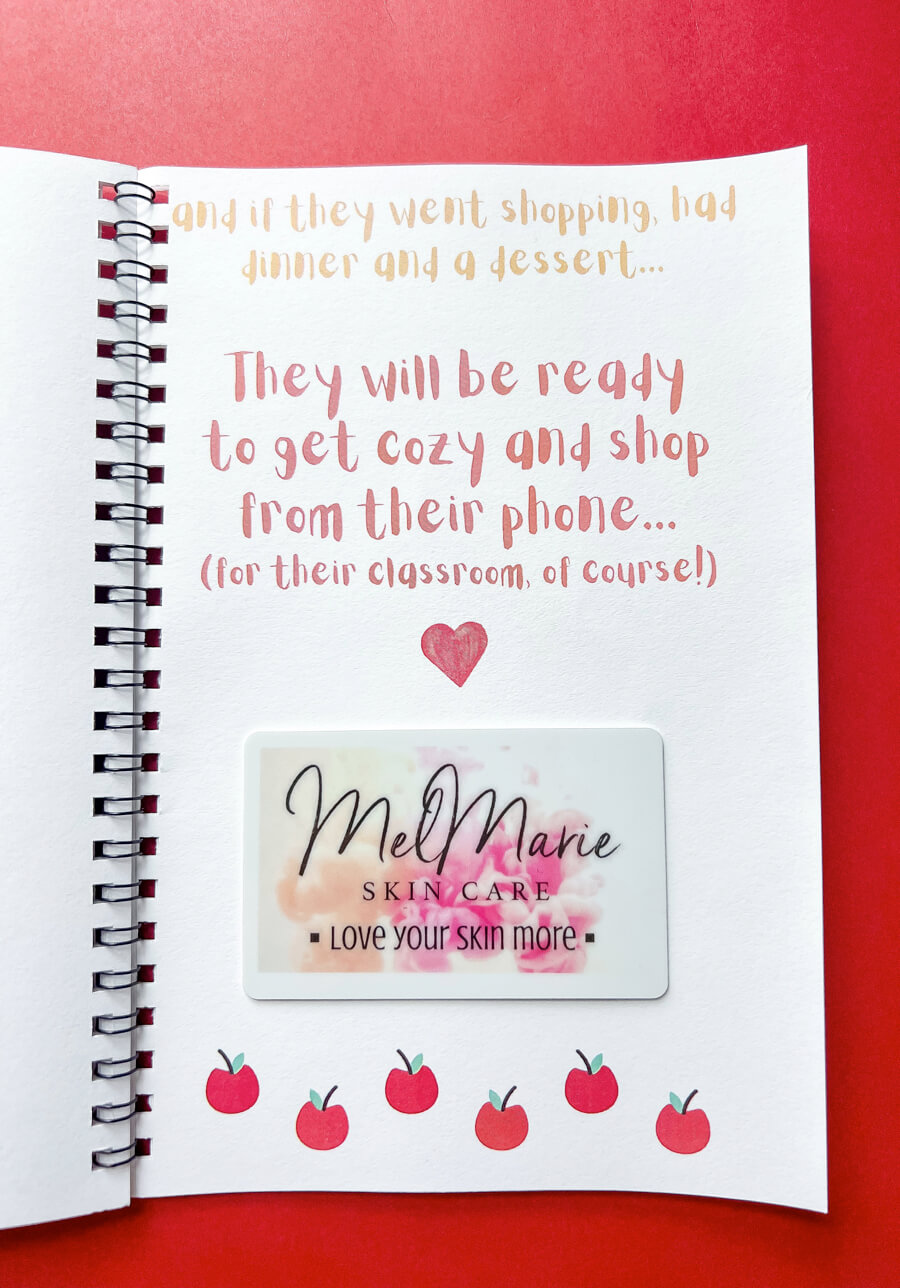 and if they went shopping, had
dinner and a dessert...
They will be ready
to get cozy and shop
from their phone...
(for their classroom, of course!)
MelMarie
SKIN CARE
▪ Love your skin more ▪